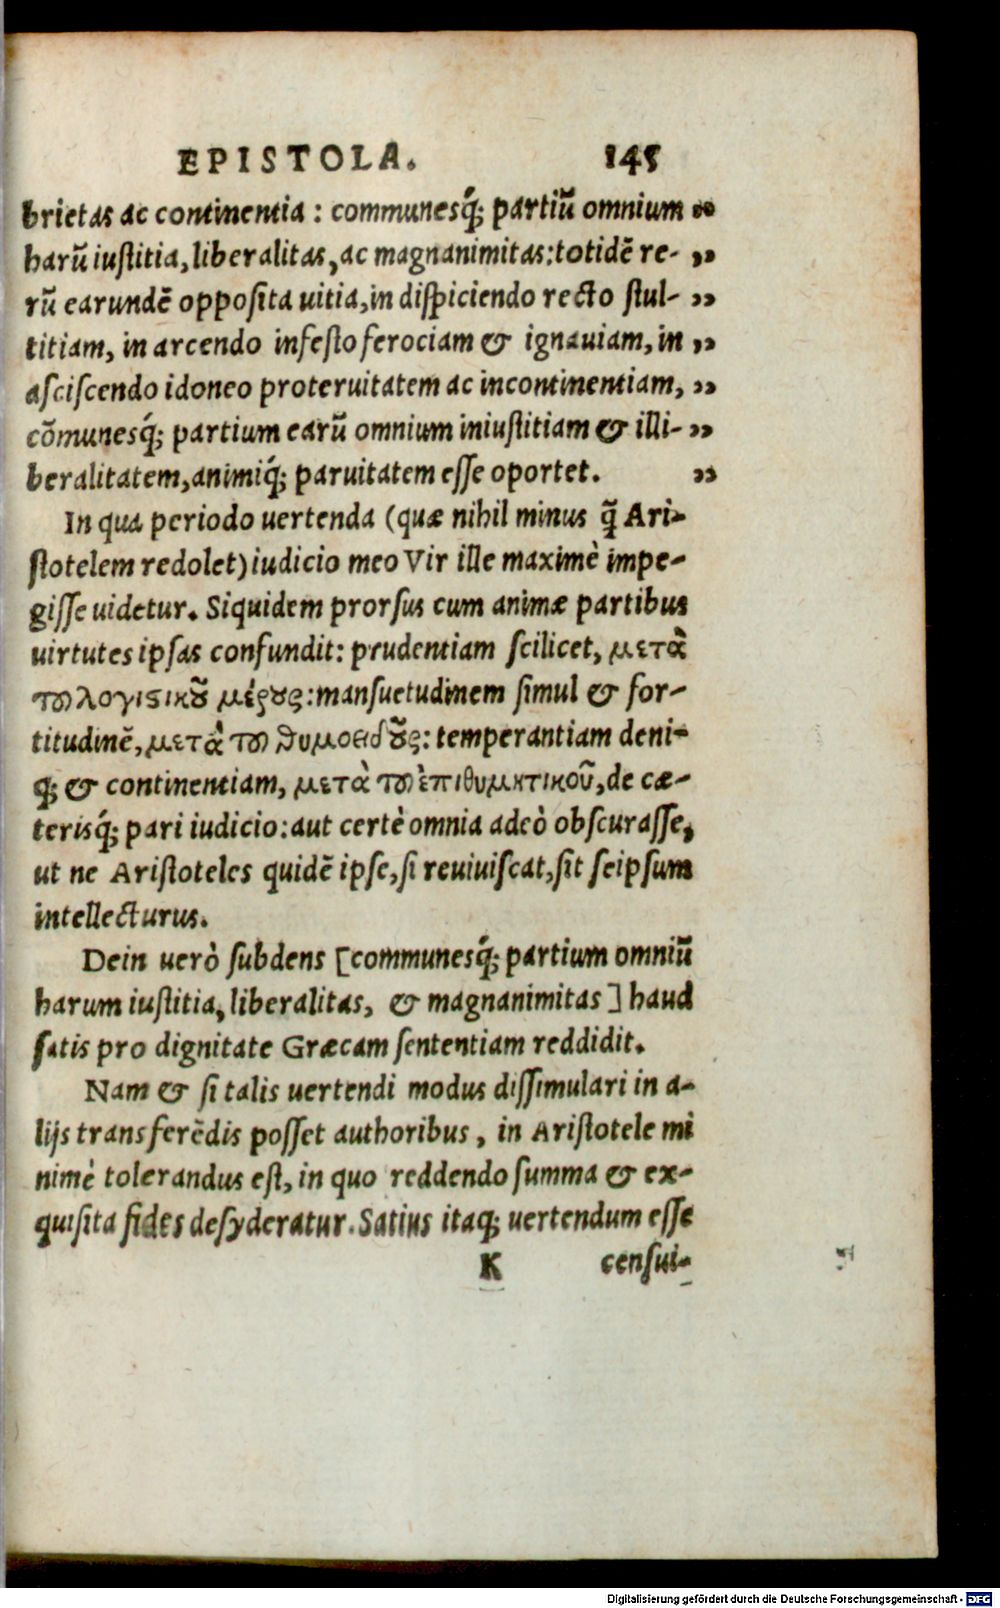 EPISTOLA. 145
brietas ac continentia : communesq́; partiũ omnium ”
harũ iustitia, liberalitas, ac magnanimitas: totidẽ re- ”
rũ earundẽ opposita uitia, in dispiciendo recto stul- ”
titiam, in arcendo infesto ferociam & ignauiam, in ”
asciscendo idoneo proteruitatem ac incontinentiam, ”
cõmunesq́; partium earũ omnium iniustitiam & illi- ”
beralitatem, animiq́; paruitatem esse oportet. ”
In qua periodo uertenda (quæ nihil minus q̃ Ari-
stotelem redolet) iudicio meo Vir ille maximè impe-
gisse uidetur. Siquidem prorsus cum animæ partibus
uirtutes ipsas confundit: prudentiam scilicet, μετὰ
τοῦ λογιστικοῦ μέρους: mansuetudinem simul & for-
titudinẽ, μετὰ τοῦ θυμοειδοῦς: temperantiam deni-
q; & continentiam, μετὰ τοῦ ἐπιθυμητικοῦ, de cæ-
terisq́; pari iudicio: aut certè omnia adeò obscurasse,
ut ne Aristoteles quidẽ ipse, si reuiuiscat, sit seipsum
intellecturus.
Dein uerò subdens [communesq́; partium omniũ
harum iustitia, liberalitas, & magnanimitas] haud
satis pro dignitate Græcam sententiam reddidit.
Nam & si talis uertendi modus dissimulari in a-
lijs transferẽdis posset authoribus, in Aristotele mi
nimè tolerandus est, in quo reddendo summa & ex-
quisita fides desyderatur. Satius itaq; uertendum esse
K censui-
Digitalisierung gefördert durch die Deutsche Forschungsgemeinschaft - DFG